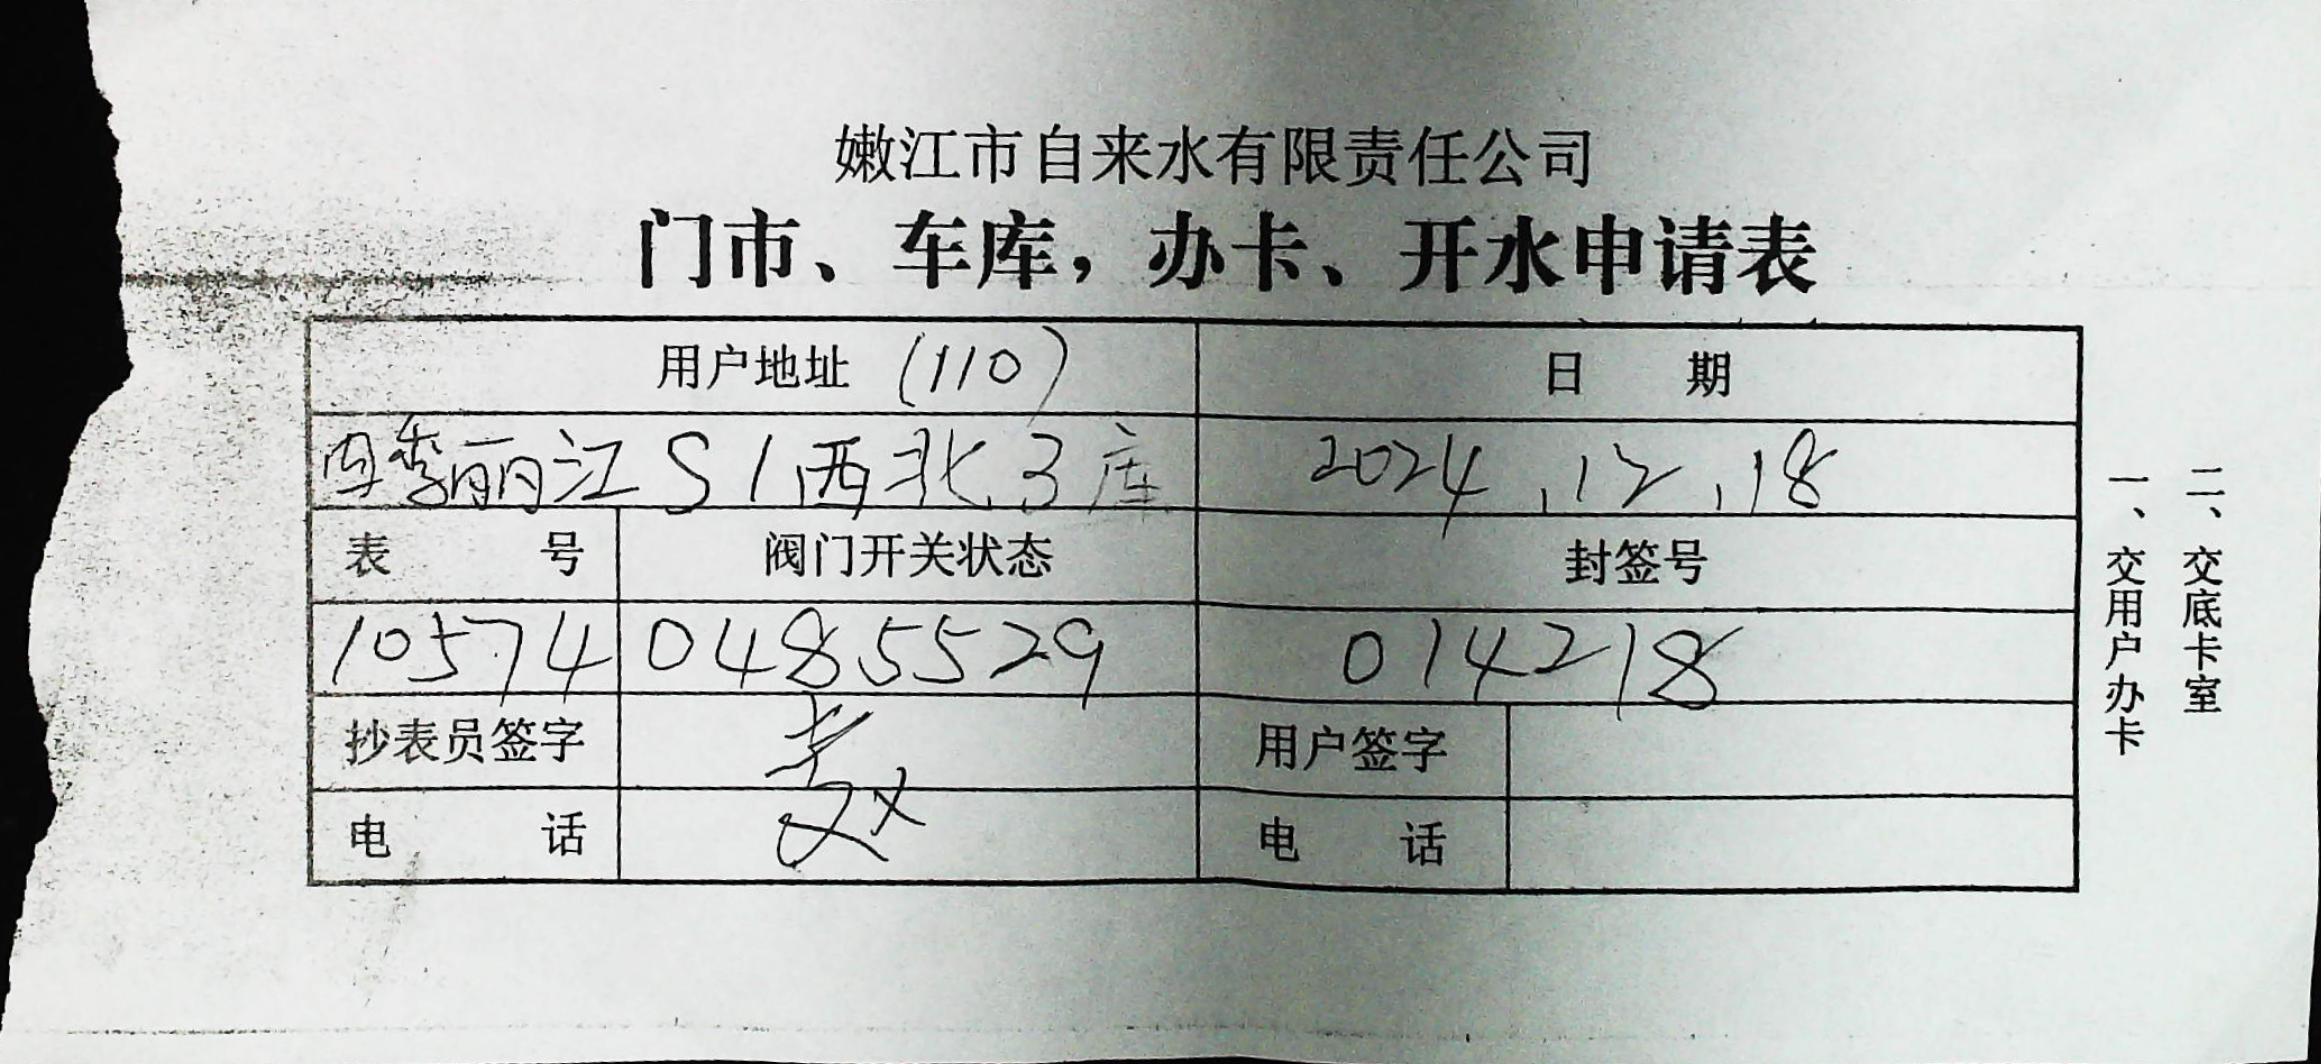 嫩江市自来水有限责任公司
门市、车库，办卡、开水申请表
用户地址 (110) 日 期
四季丽江 S1西北3库 2024.12.18
表 号 阀门开关状态 封签号
10574 0485529 014218
抄表员签字 用户签字
电 话 电 话
一、交用户办卡
二、交底卡室